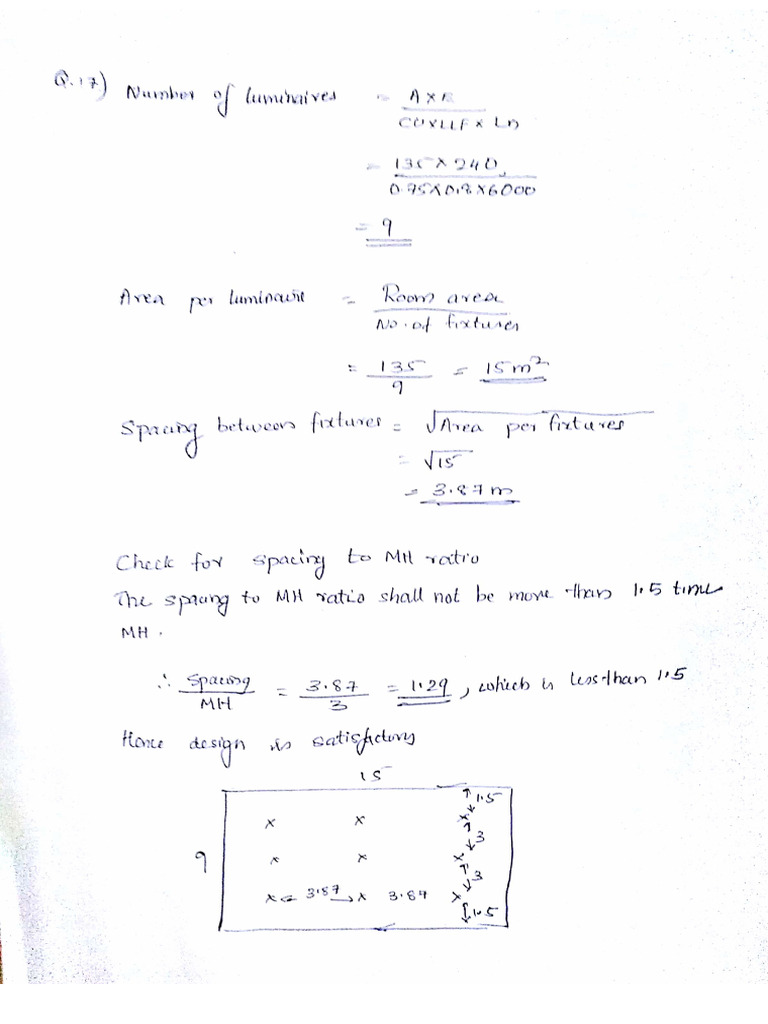 Q.17) Number of luminaires = A X E
CU X LLF X Ln
= 135 X 240
0.75 X 0.8 X 6000
= 9
Area per luminaire = Room area
No. of fixtures
= 135 = 15 m²
9
Spacing between fixtures = √Area per fixtures
= √15
= 3.87m
Check for spacing to MH ratio
The spacing to MH ratio shall not be more than 1.5 time
MH.
∴ Spacing = 3.87 = 1.29, which is less than 1.5
MH 3
Hence design is satisfactory
15
1.5
x x x
3
9 x x x
3
x 3.87 x 3.87 x
1.5